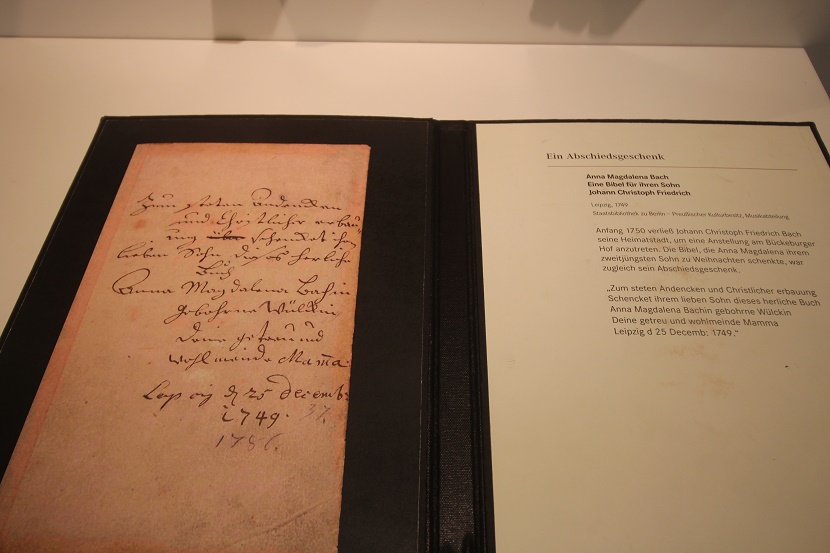 Zum steten Andencken
und Christlicher erbau
ung schencket ihrem
lieben Sohn dieses herliche
Buch
Anna Magdalena Bachin
gebohrne Wülckin
Deine getreu und
wohlmeinde Mama
Leipzig d 25 decemb:
1749. 37.
1786.
Ein Abschiedsgeschenk
Anna Magdalena Bach
Eine Bibel für ihren Sohn
Johann Christoph Friedrich
Leipzig, 1749
Staatsbibliothek zu Berlin – Preußischer Kulturbesitz, Musikabteilung
Anfang 1750 verließ Johann Christoph Friedrich Bach
seine Heimatstadt, um eine Anstellung am Bückeburger
Hof anzutreten. Die Bibel, die Anna Magdalena ihrem
zweitjüngsten Sohn zu Weihnachten schenkte, war
zugleich sein Abschiedsgeschenk.
„Zum steten Andencken und Christlicher erbauung
Schencket ihrem lieben Sohn dieses herliche Buch
Anna Magdalena Bachin gebohrne Wülckin
Deine getreu und wohlmeinde Mamma
Leipzig d 25 Decemb: 1749.“